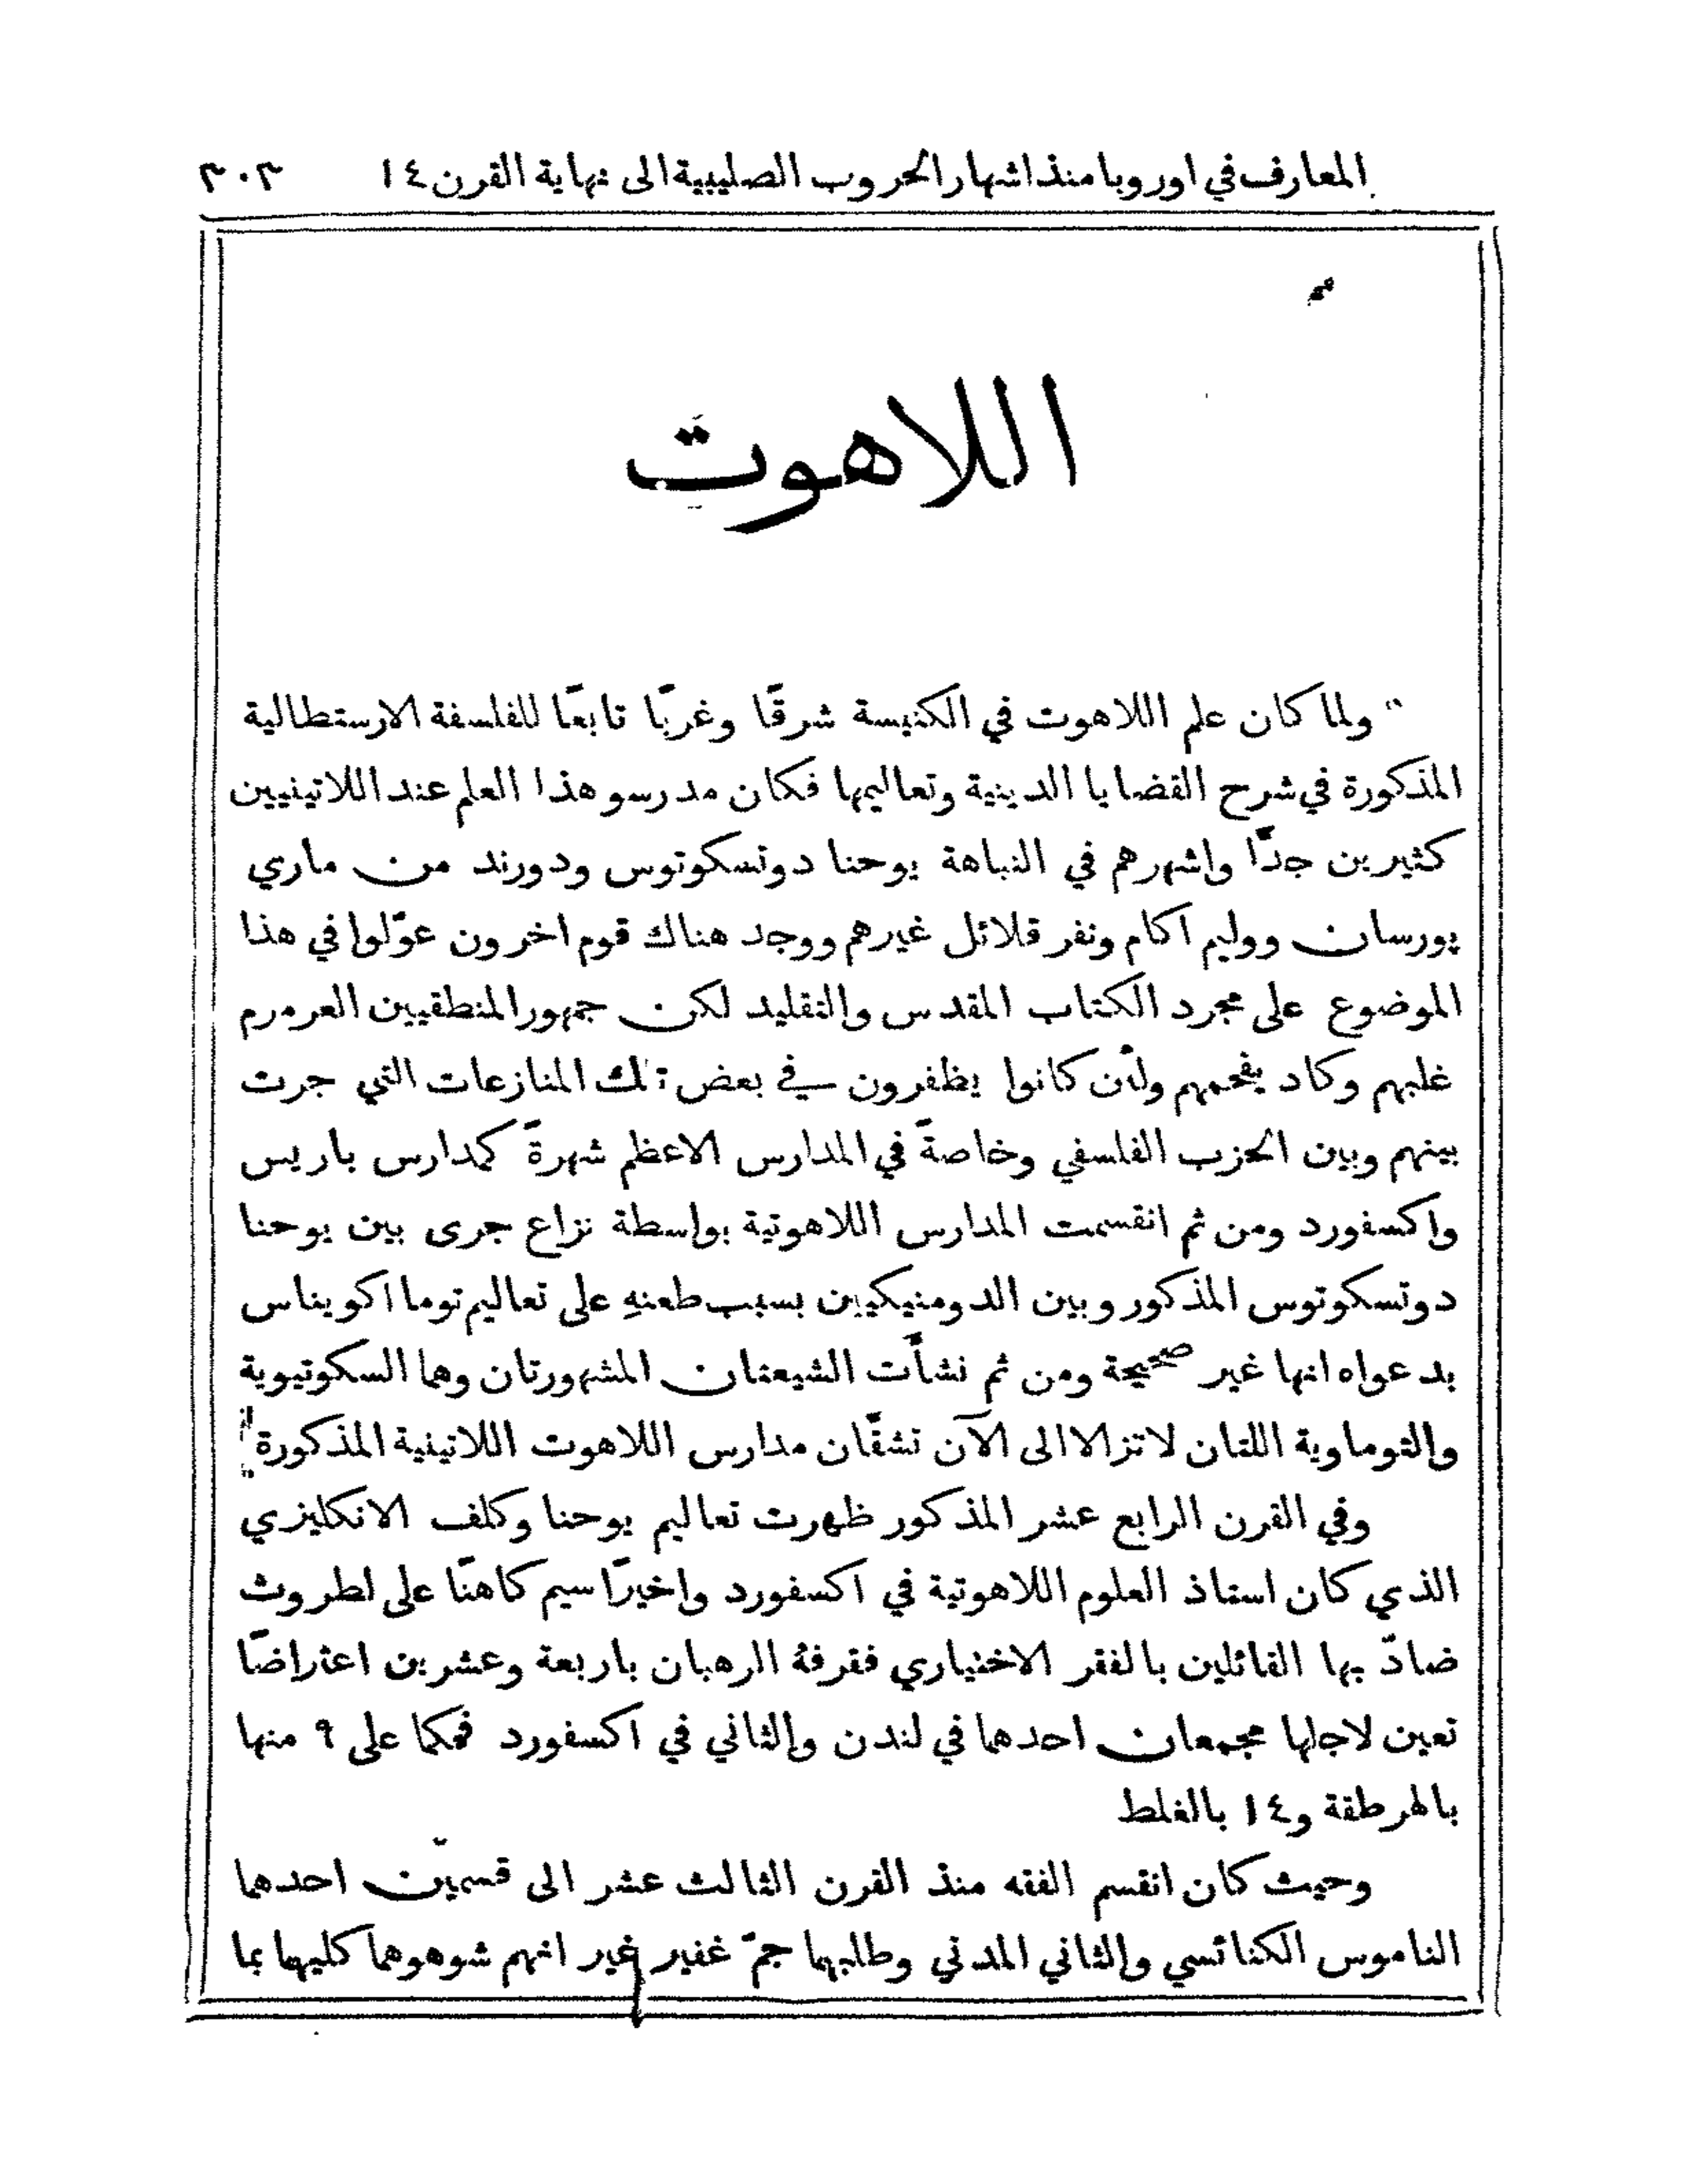 المعارف في اوروبا منذ اشهار الحروب الصليبية الى نهاية القرن ١٤ ٣٠٣
اللاهوت
" ولما كان علم اللاهوت في الكنيسة شرقًا وغربًا تابعًا للفلسفة الارستطالية
المذكورة في شرح القضايا الدينية وتعاليمها فكان مدرسو هذا العلم عند اللاتينيين
كثيرين جدًّا واشهرهم في النباهة يوحنا دوتسكوتوس ودورند من ماري
پورسان ووليم اكام ونفر قلائل غيرهم ووجد هناك قوم اخرون عوّلوا في هذا
الموضوع على مجرد الكتاب المقدس والتقليد لكن جمهور المنطقيين العرمرم
غلبهم وكاد يفحمهم ولئن كانوا يظفرون في بعض تلك المنازعات التي جرت
بينهم وبين الحزب الفلسفي وخاصةً في المدارس الاعظم شهرةً كمدارس باريس
واكسفورد ومن ثم انقسمت المدارس اللاهوتية بواسطة نزاع جرى بين يوحنا
دوتسكوتوس المذكور وبين الدومنيكيين بسبب طعنهِ على تعاليم توما اكويناس
بدعواه انها غير صحيحة ومن ثم نشأت الشيعتان المشهورتان وهما السكوتيوية
والتوماوية اللتان لا تزالا الى الآن تشقّان مدارس اللاهوت اللاتينية المذكورة"
وفي القرن الرابع عشر المذكور ظهرت تعاليم يوحنا وكلف الانكليزي
الذي كان استاذ العلوم اللاهوتية في اكسفورد واخيرًا سيم كاهنًا على لطروث
ضادّ بها القائلين بالفقر الاختياري فقرفهُ الرهبان باربعة وعشرين اعتراضًا
تعين لاجلها مجمعان احدهما في لندن والثاني في اكسفورد فحكما على ٩ منها
بالهرطقة و١٤ بالغلط
وحيث كان انقسم الفقه منذ القرن الثالث عشر الى قسمين احدهما
الناموس الكنائسي والثاني المدني وطلبهما جمّ غفير غير انهم شوهوهما كليهما بما